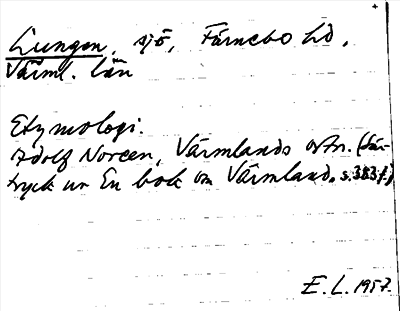 Lungen, sjö, Färnebo hd,
Värml. län
Etymologi.
Adolf Noreen, Värmlands ortn. (Sär-
tryck ur En bok om Värmland. s. 383 f.)
E. L. 1957.